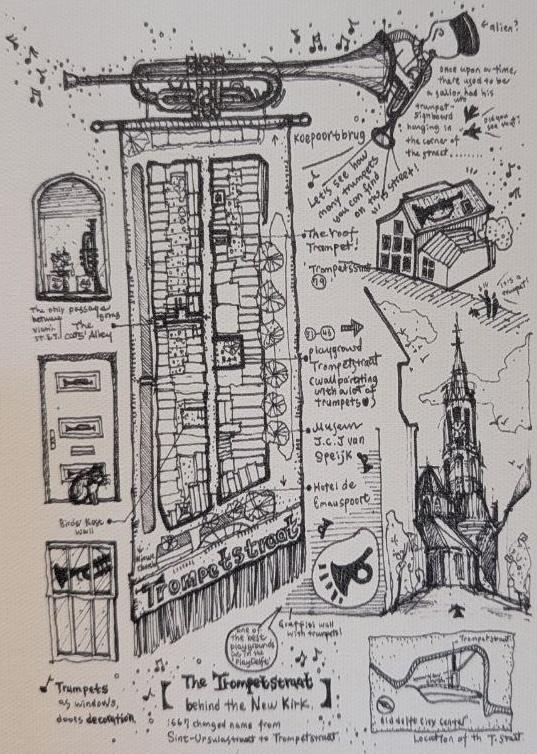 alien?
once upon a time,
there used to be
a sailor who had his
trumpet
signboard
hanging in
the corner of
the street
Koepoortbrug
Let's see how
many trumpets
you can find
on this street!
The roof
Trumpet!
This is a
trumpet!
The only passage
between
The
Cats' Alley
playground
Trompetstraat
(wall painting
with a lot of
trumpets)
Museum
J.C.J van
Speijk
Hotel de
Emauspoort
Birds' Kost
wall
Trompetstraat
Graffiti wall
with trumpets!
one of
the best
playgrounds
Trumpets
as windows,
doors decoration.
[The Trompetstraat
behind the New Kirk.]
1667 changed name from
Sint-Ursulastraat to Trompetstraat
Trompetstraat
Old Delft City Center
Location of th T. Straat